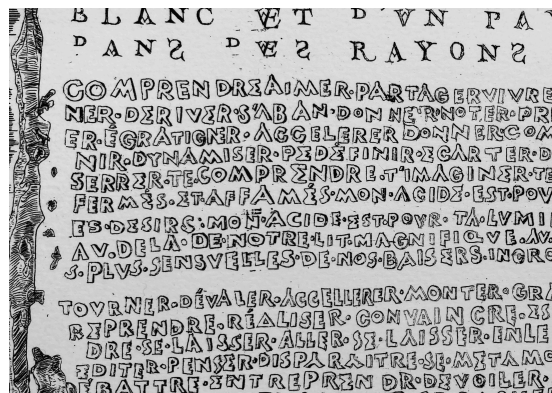 BLANC ET D'VN PA
DANS DES RAYONS
COMPRENDRE AIMER·PARTAGER VIVRE
NER·DERIVER·S'ABAN·DONNER·NOTER·PR
ER·ÉGRATIGNER·ACCELERER DONNER COM
NIR·DYNAMISER·REDÉFINIR·ECARTER·D
SERRER·TE·COMPRENDRE·T'IMAGINER·TE
FERMÉS·ET AFFAMÉS·MON·ACIDE·EST·POV
ES·DESIRS·MON·ACIDE·EST·POVR·TA·LVMI
AV·DELA·DE·NOTRE·LIT·MAGNIFIQVE·AV
S·PLVS·SENSVELLES·DE·NOS·BAISERS·INGRO
TOVRNER·DÉVALER·ACCELLERER·MONTER·GRA
REPRENDRE·RÉALISER·CONVAINCRE·ES
DRE·SE·LAISSER·ALLER·SE·LAISSER·ENLE
EDITER·PENSER·DISPARAITRE·SE·METAMO
DÉBATTRE·ENTREPRENDR·DEVOILER·